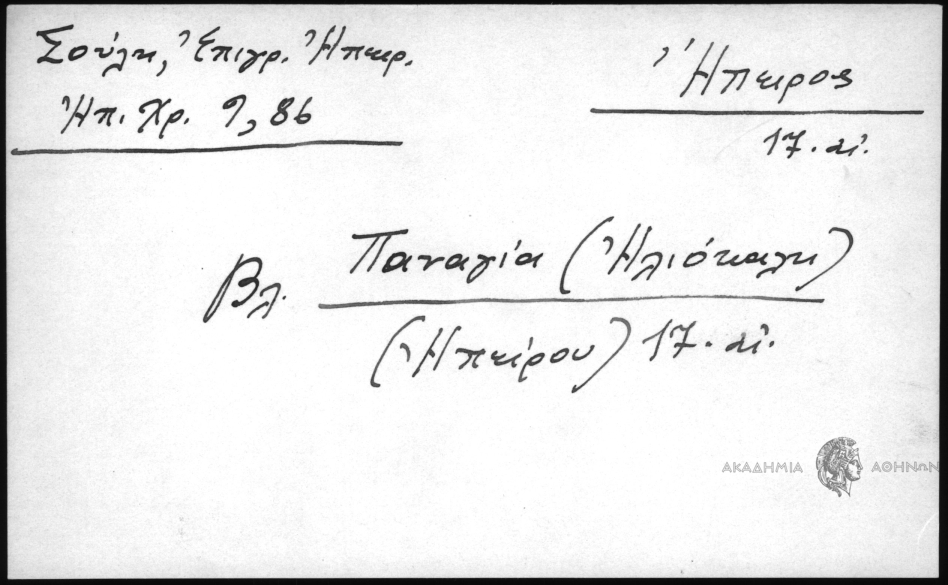 Σούλη, Ἐπιγρ. Ἠπειρ.
Ἠπ. Χρ. 9, 86
Ἤπειρος
17. αἰ.
Βλ. Παναγία (Ἡλιόκαλη)
(Ἠπείρου) 17. αἰ.
ΑΚΑΔΗΜΙΑ ΑΘΗΝΩΝ